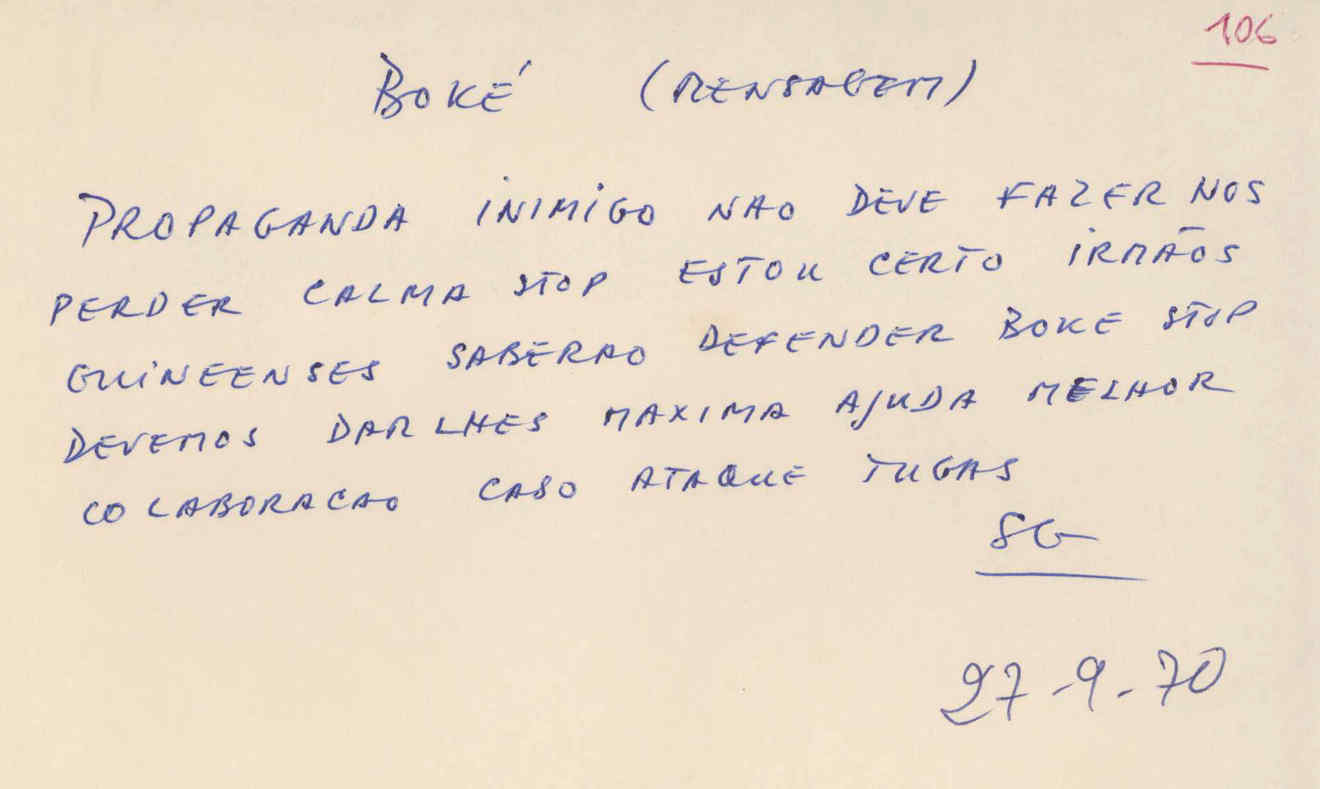 106
BOKÉ (MENSAGEM)
PROPAGANDA INIMIGO NAO DEVE FAZER NOS
PERDER CALMA STOP ESTOU CERTO IRMÃOS
GUINEENSES SABERAO DEFENDER BOKE STOP
DEVEMOS DAR LHES MAXIMA AJUDA MELHOR
COLABORACAO CASO ATAQUE TUGAS
SG
27-9-70